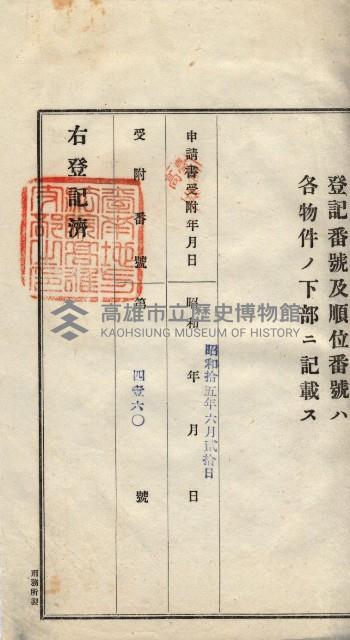 登記番號及順位番號ハ
各物件ノ下部ニ記載ス
申請書受附年月日
昭和 年 月 日
昭和拾五年六月貳拾日
受附番號
第 四壹六〇 號
右登記濟
刑務所製
高雄市立歷史博物館
KAOHSIUNG MUSEUM OF HISTORY